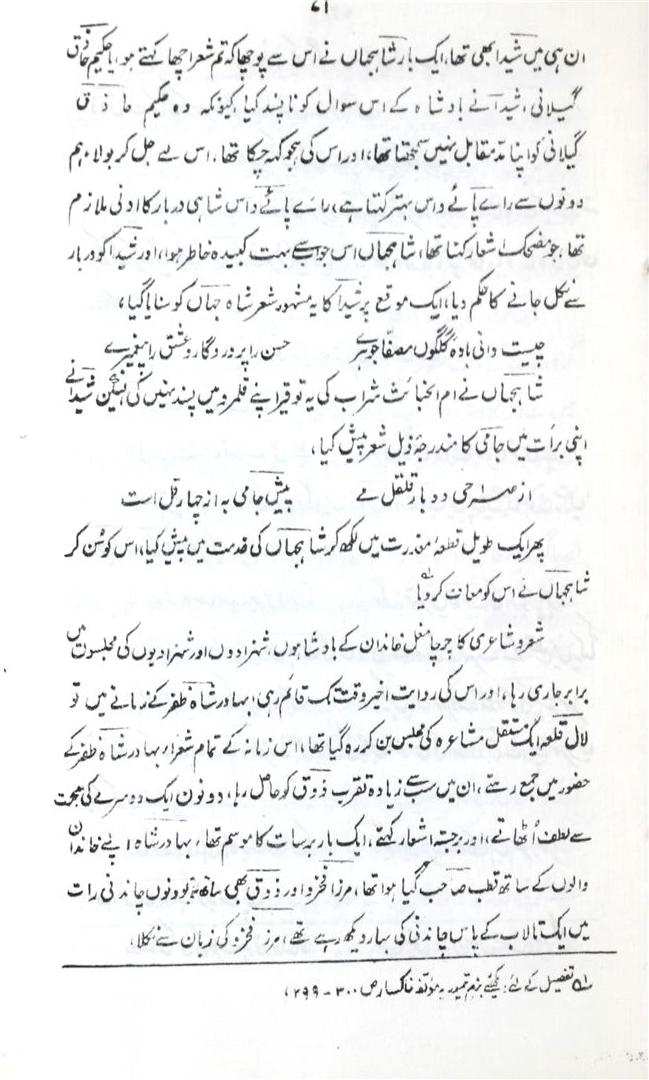 ۷۱
ان ہی میں شیدا بھی تھا، ایک بار شاہجہاں نے اس سے پوچھا کہ تم شعر اچھا کہتے ہو، یا حکیم حاذق
گیلانی، شیدا نے بادشاہ کے اس سوال کو ناپسند کیا کیونکہ وہ حکیم حاذق
گیلانی کو اپنا مدمقابل نہیں سمجھتا تھا، اور اس کی ہجو کہہ چکا تھا، اس لیے جل کر بولا، ہم
دونوں سے رائے پائے داس بہتر کہتا ہے، رائے پائے داس شاہی دربار کا ادنی ملازم
تھا، جو مضحک اشعار کہتا تھا، شاہجہاں اس جواب سے بہت کبیدہ خاطر ہوا، اور شیدا کو دربار
سے نکل جانے کا حکم دیا، ایک موقع پر شیدا کا یہ مشہور شعر شاہ جہاں کو سنایا گیا،
چیست دانی بادۂ گلگوں مصفا جوہرے حسن را پروردگارو عشق را پیغمبرے
شاہجہاں نے ام الخبائث شراب کی یہ توقیر اپنے قلمرو میں پسند نہیں کی لیکن شیدا نے
اپنی برأت میں جامی کا مندرجۂ ذیل شعر پیش کیا،
از صراحی دو بار قلقل مے پیش جامی بہ از چہار قل است
پھر ایک طویل قطعۂ معذرت میں لکھ کر شاہجہاں کی خدمت میں پیش کیا، اس کو سُن کر
شاہجہاں نے اس کو معاف کر دیا
شعر و شاعری کا چرچا مغل خاندان کے بادشاہوں، شہزادوں اور شہزادیوں کی مجلسوں میں
برابر جاری رہا، اور اس کی روایت اخیر وقت تک قائم رہی، بہادر شاہ ظفر کے زمانے میں تو
لال قلعہ ایک مستقل مشاعرہ کی مجلس بن کر رہ گیا تھا، اس زمانہ کے تمام شعراء بہادر شاہ ظفر کے
حضور میں جمع رہتے، ان میں سب سے زیادہ تقرب ذوق کو حاصل رہا، دونوں ایک دوسرے کی صحبت
سے لطف اُٹھاتے، اور برجستہ اشعار کہتے، ایک بار برسات کا موسم تھا، بہادر شاہ اپنے خاندان
والوں کے ساتھ قطب صاحب گیا ہوا تھا، مرزا فخرو اور ذوق بھی ساتھ تھے، دونوں چاندنی رات
میں ایک تالاب کے پاس چاندنی کی بہار دیکھ رہے تھے، مرزا فخرو کی زبان سے نکلا،
لے تفصیل کے لئے دیکھئے بزم تیموریہ مؤلفہ خاکسار ص ۳۰۰ - ۲۹۹،